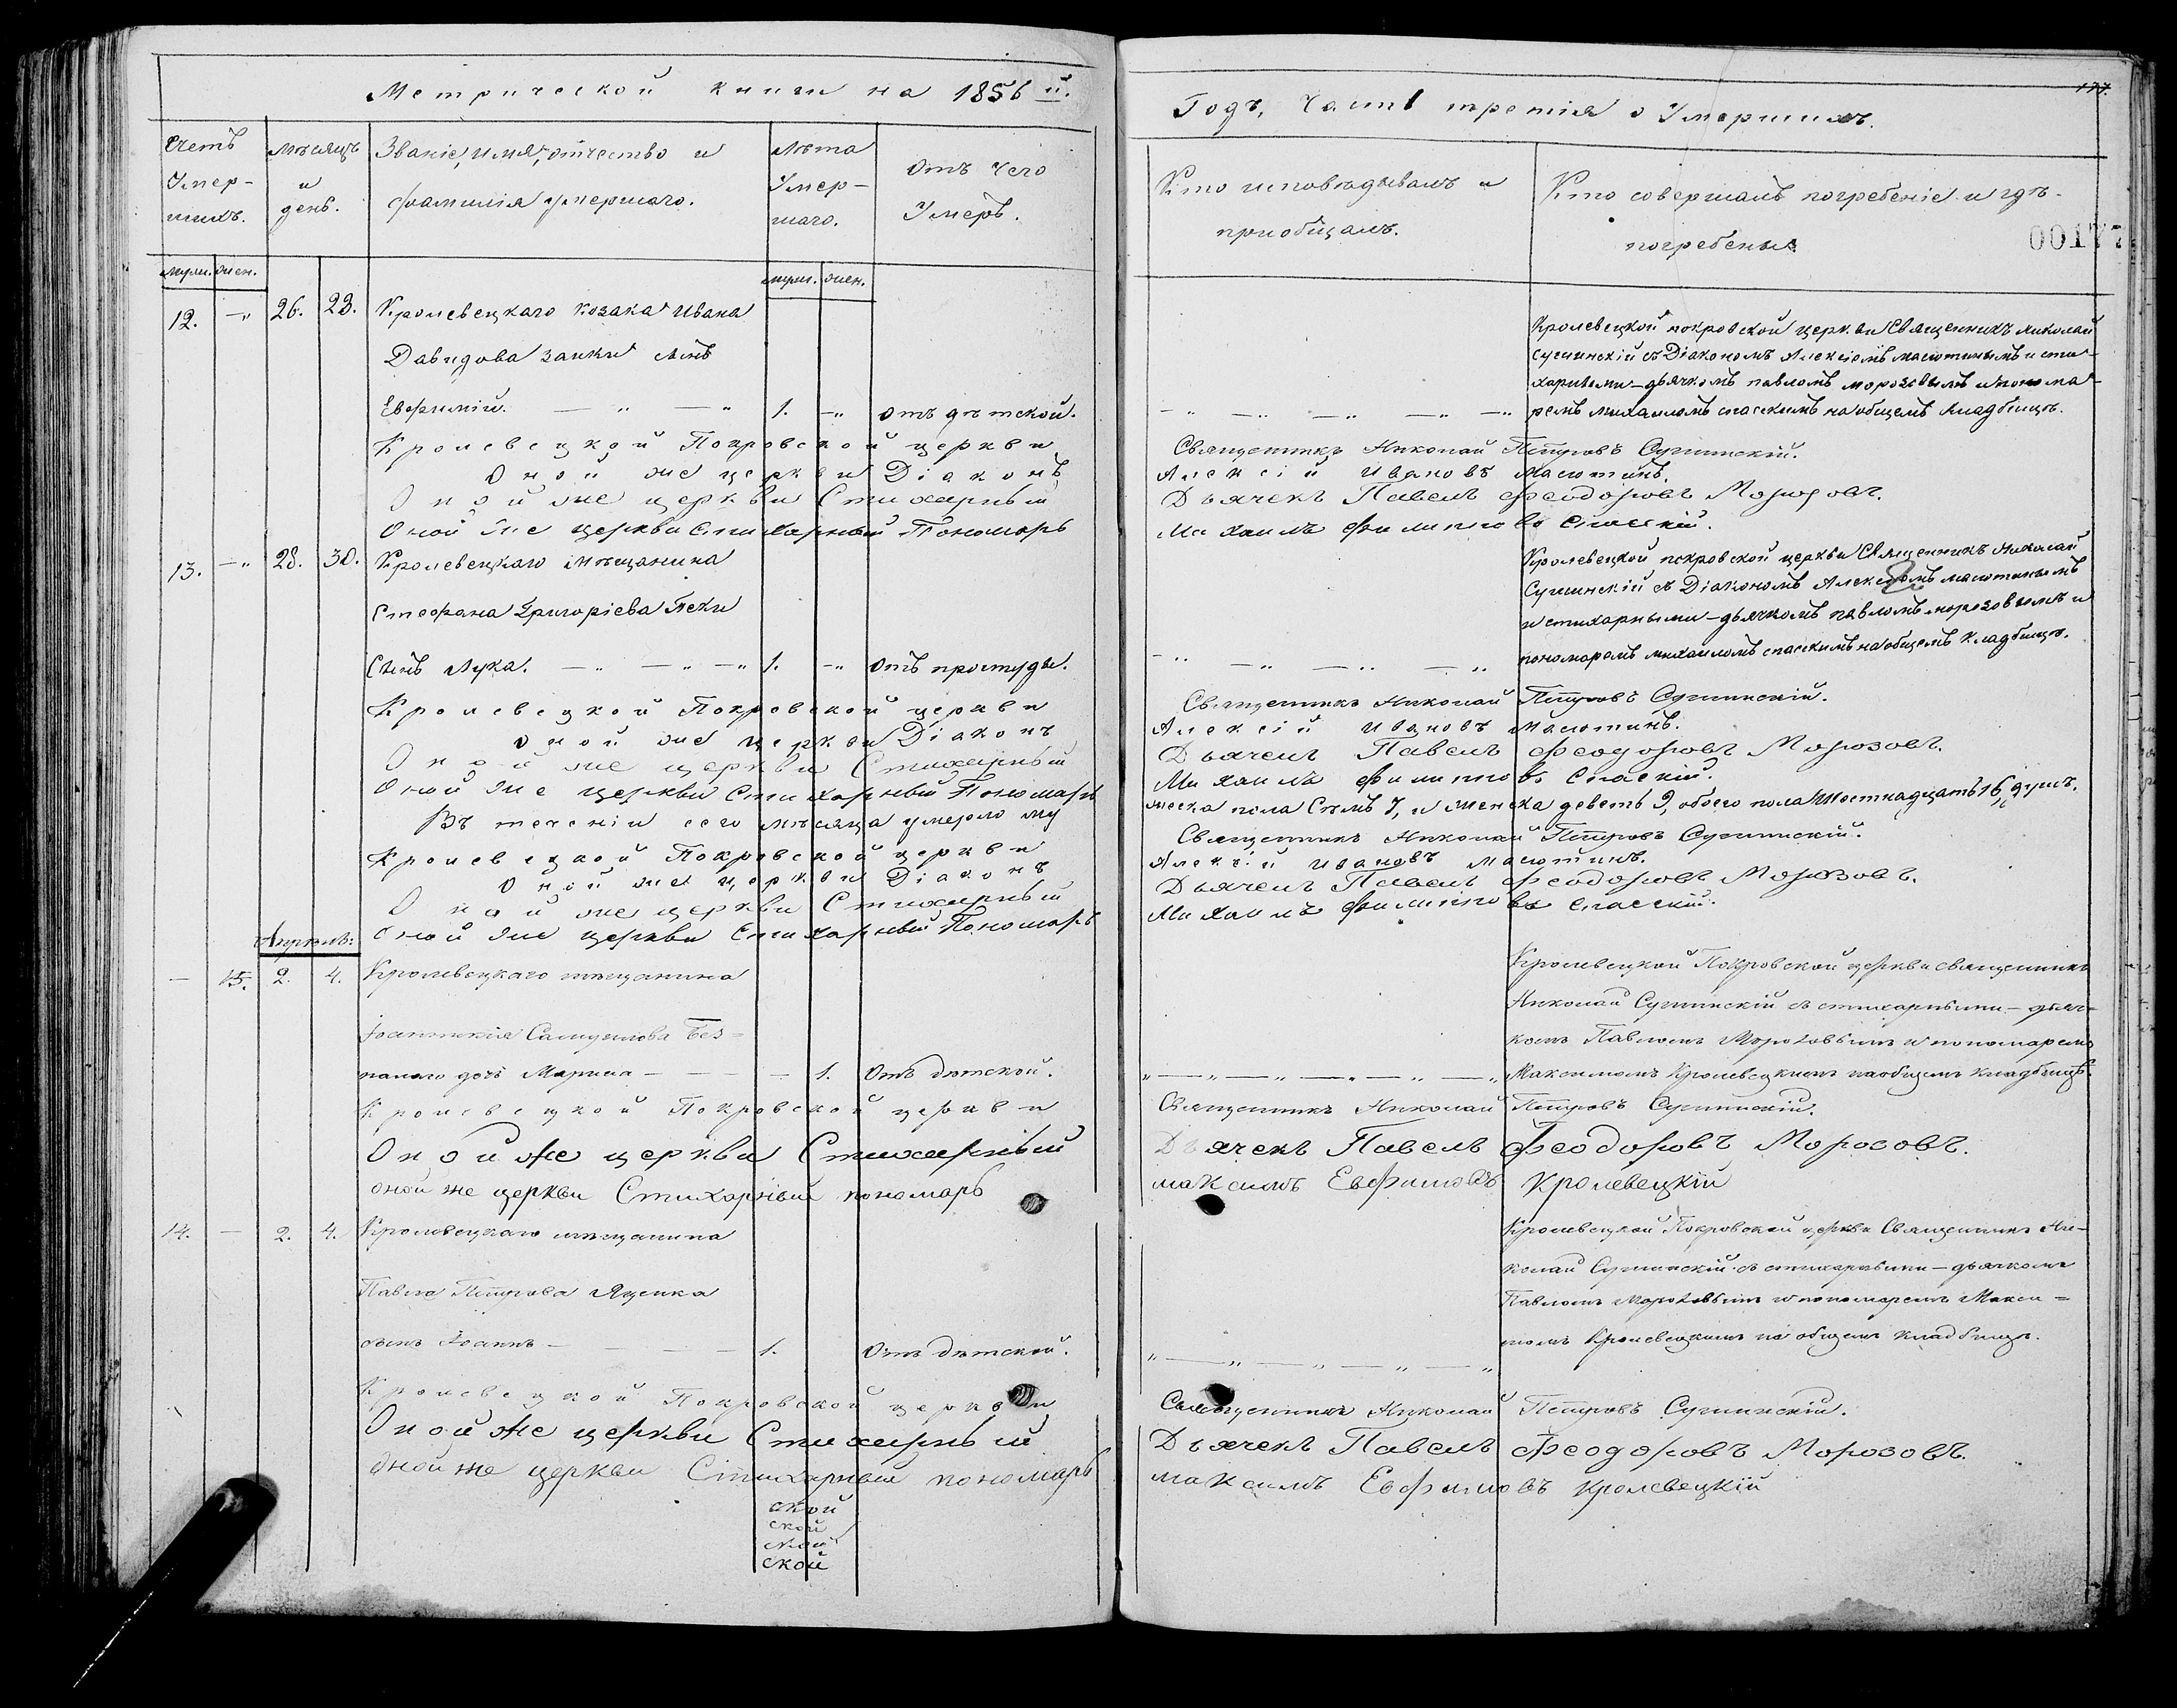 Метрической книги на 1856 й.
Годъ, Часть третія о Умершихъ.
177.
00177
Счетъ Умер-шихъ.
Мѣсяцъ и день.
Званіе, имя, отчество и фамилія умершаго.
Лѣта Умер-шаго.
Отъ чего Умеръ.
Кто исповѣдывалъ и пріобщалъ.
Кто совершалъ погребеніе и гдѣ погребены.
муж. жен.
муж. жен.
12. —„ 26. 28. Кролевецкаго козака Ивана
Давидова Заики сынъ
Евфимій. — „ — „ 1. —„ отъ дѣтской.
Кролевецкой покровской церкви Священникъ Николай
Сугшинскій съ Діакономъ Алексіемъ Масютинымъ и сти-
харными – дьячкомъ павломъ морозовымъ и понома-
ремъ михаиломъ спасскимъ на общемъ кладбищѣ.
Кролевецкой Покровской церкви Священникъ Николай Петровъ Сугшинскій.
Оной же церкви Діаконъ Алексій Ивановъ Масютинъ.
Оной же церкви Стихарный Дьячекъ Павелъ Феодоровъ Морозовъ.
Оной же церкви Стихарный Пономарь Михаилъ Филиповъ Спасскій.
13. —„ 28. 30. Кролевецкаго мѣщанина
Стефана Григоріева
Сынъ Лука. — „ — „ —„ 1. —„ Отъ простуды.
Кролевецкой покровской церкви Священникъ Николай
Сугшинскій съ Діакономъ Алексіемъ масютинымъ
и стихарными – дьячкомъ павломъ морозовымъ и
пономаремъ михаиломъ спасскимъ на общемъ кладбищѣ.
Кролевецкой Покровской церкви Священникъ Николай Петровъ Сугшинскій.
Оной же церкви Діаконъ Алексій Ивановъ Масютинъ.
Оной же церкви Стихарный Дьячекъ Павелъ Феодоровъ Морозовъ.
Оной же церкви Стихарный Пономарь Михаилъ Филиповъ Спаскій.
Въ теченіи сего мѣсяца умерло мужеска пола Семь 7, и женска девять 9, обоего пола Шестнадцать 16, душъ.
Кролевецкой Покровской церкви Священникъ Николай Петровъ Сугшинскій.
Оной же церкви Діаконъ Алексій Ивановъ Масютинъ.
Оной же церкви Стихарный Дьячекъ Павелъ Феодоровъ Морозовъ.
Оной же церкви Стихарный Пономарь Михаилъ Филиповъ Спасскій.
Апрѣль:
— 15. 2. 4. Кролевецкаго мѣщанина
Самуилова Без=
палаго дочь Марина — — — 1. Отъ дѣтской.
Кролевецкой Покровской церкви священникъ
Николай Сугшинскій съ стихарными – дьяч-
комъ Павломъ Морозовымъ и пономаремъ
Максимомъ Кролевецкимъ на общемъ кладбищѣ.
Кролевецкой Покровской церкви Священникъ Николай Петровъ Сугшинскій.
Оной же церкви Стихарный Дьячекъ Павелъ Феодоровъ Морозовъ.
оной же церкви Стихарный пономарь максимъ Евфимовъ Кролевецкій
14. — 2. 4. Кролевецкаго мѣщанина
Павла Петрова Яценка
сынъ Іоаннъ — — — — 1. Отъ дѣтской.
Кролевецкой Покровской церкви Священникъ Ни-
колай Сугшинскій съ стихарными – дьячкомъ
Павломъ Морозовымъ и пономаремъ Макси=
момъ Кролевецкимъ на общемъ кладбищѣ.
Кролевецкой Покровской церкви Священникъ Николай Петровъ Сугшинскій.
Оной же церкви Стихарный Дьячекъ Павелъ Феодоровъ Морозовъ.
оной же церкви Стихарный пономарь максимъ Евфимовъ Кролевецкій
ской
ской
ской
ской